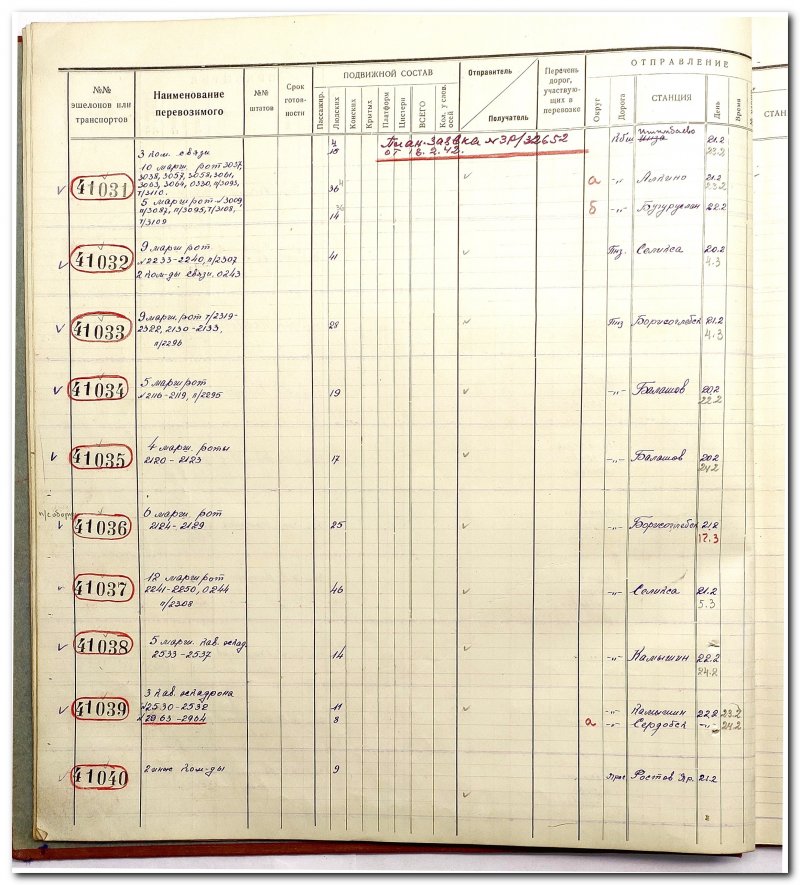 №№ эшелонов или транспортов
Наименование перевозимого
№№ штатов
Срок готов-ности
ПОДВИЖНОЙ СОСТАВ
Пассажир.
Людских
Конских
Крытых
Платформ
Цистерн
ВСЕГО
Кол. услов. осей
Отправитель
Получатель
Перечень дорог, участвую-щих в перевозке
ОТПРАВЛЕНИЕ
Округ
Дорога
СТАНЦИЯ
День
Время
СТАН
План-заявка №ЭР/32652
от 16.2.42.
3 ком. связи 4
10 21.2
23.2
41031
10 марш. рот 3037,
3038, 3057, 3058, 3061,
3063, 3064, 0330, п/3093,
т/3110. 36 а -"- 21.2
23.2
5 марш рот №3009,
п/3087, п/3095, т/3108,
т/3109 14 б -"- Бугуруслан 22.2
41032
9 марш рот
№2233-2240, п/2307 41 Пнз. Селикса 20.2
4.3
2 ком-ды связи. 0243
41033
9 марш. рот т/2319-
2322, 2130-2133, 28 Пнз Борисоглебск 21.2
4.3
п/2296
41034
5 марш рот
№2116-2119, п/2295 19 -"- Балашов 20.2
22.2
41035
4 марш. роты
2120-2123 17 -"- Балашов 20.2
24.2
41036
6 марш. рот
2124-2129 25 -"- Борисоглебск 21.2
17.3
41037
12 марш рот
2241-2250, 0244 46 -"- Селикса 21.2
5.3
п/2308
41038
5 марш. кав. эскад.
2533-2537 14 -"- Камышин 22.2
24.2
41039
3 кав. эскадрона
№2530-2532 11 -"- Камышин 22.2 23.2
№2963-2964 8 а -"- Сердобск -"- 24.2
41040
2 иные ком-ды 9 Ростов Яр. 21.2